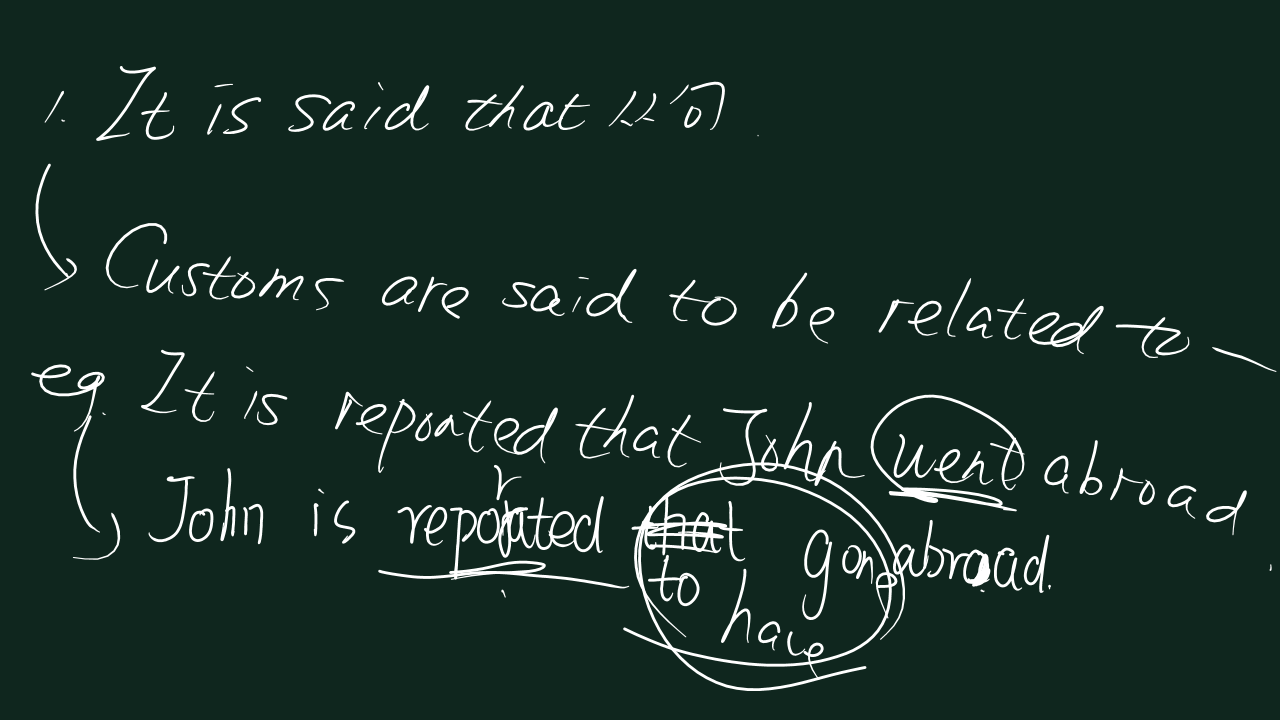 1. It is said that 以句
Customs are said to be related to —
eg. It is reported that John went abroad
John is reported to have gone abroad.